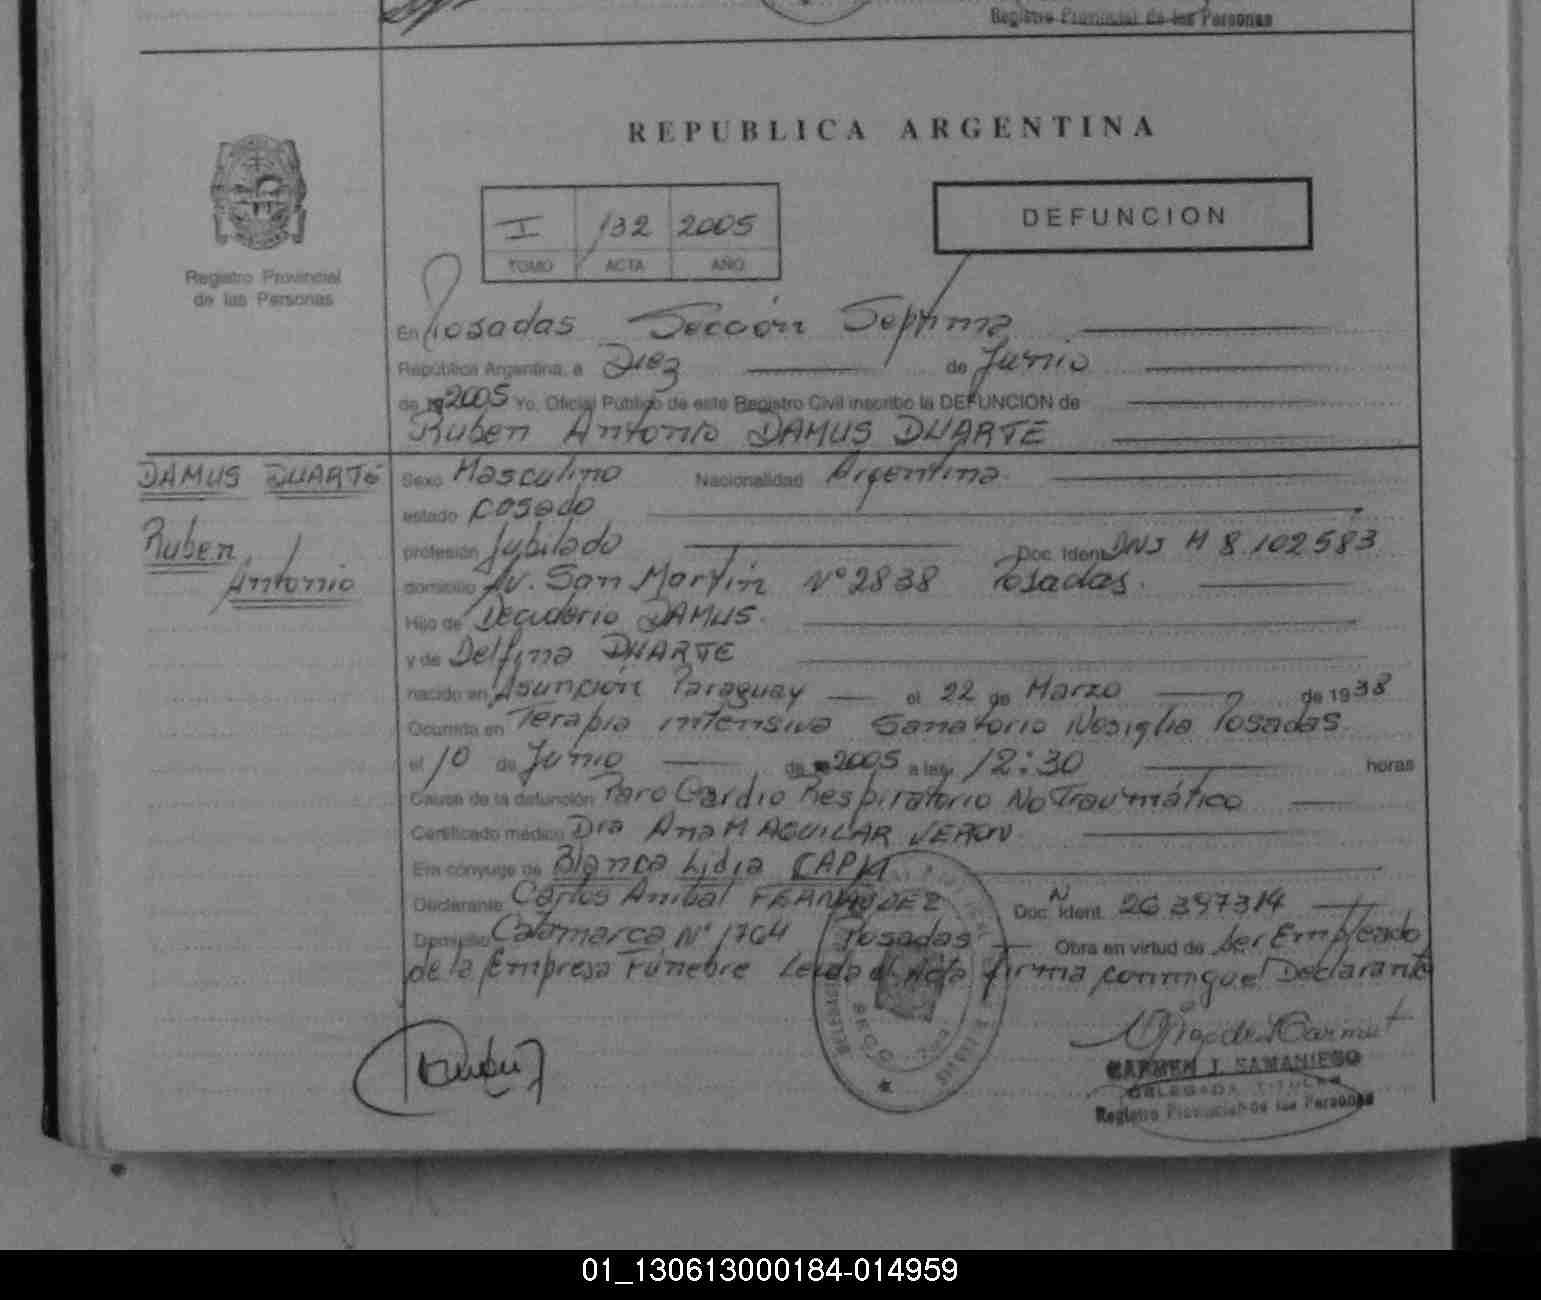 Registro Provincial de las Personas
REPUBLICA ARGENTINA
I 132 2005
TOMO ACTA AÑO
DEFUNCION
Registro Provincial
de las Personas
En Posadas Sección Septima
República Argentina, a Diez de Junio
de 2005 Yo, Oficial Público de este Registro Civil inscribo la DEFUNCION de
Ruben Antonio DAMUS DUARTE
DAMUS DUARTE
Ruben
Antonio
Sexo Masculino Nacionalidad Argentina.
estado casado
profesión Jubilado Doc. Ident. DNI M 8.102583
domicilio Av. San Martín Nº 2838 Posadas.
Hijo de Decuderio DAMUS.
y de Delfina DUARTE
nacido en Asunción Paraguay el 22 de Marzo de 1938
Ocurrida en Terapia intensiva Sanatorio Nosiglia Posadas
el 10 de Junio de 2005 a las 12:30 horas
Causa de la defunción Paro Cardio Respiratorio No Traumático
Certificado médico Dra Ana M AGUILAR VERON.
Era cónyuge de Blanca Lidia
Declarante Carlos Anibal Doc. Ident. N
Domicilio Catamarca Nº 1764 Posadas Obra en virtud de ser Empleado
de la Empresa Funebre Leida el Acta firma conmigo el Declarante
CARMEN I. SAMANIEGO
DELEGADA TITULAR
Registro Provincial de las Personas
01_130613000184-014959